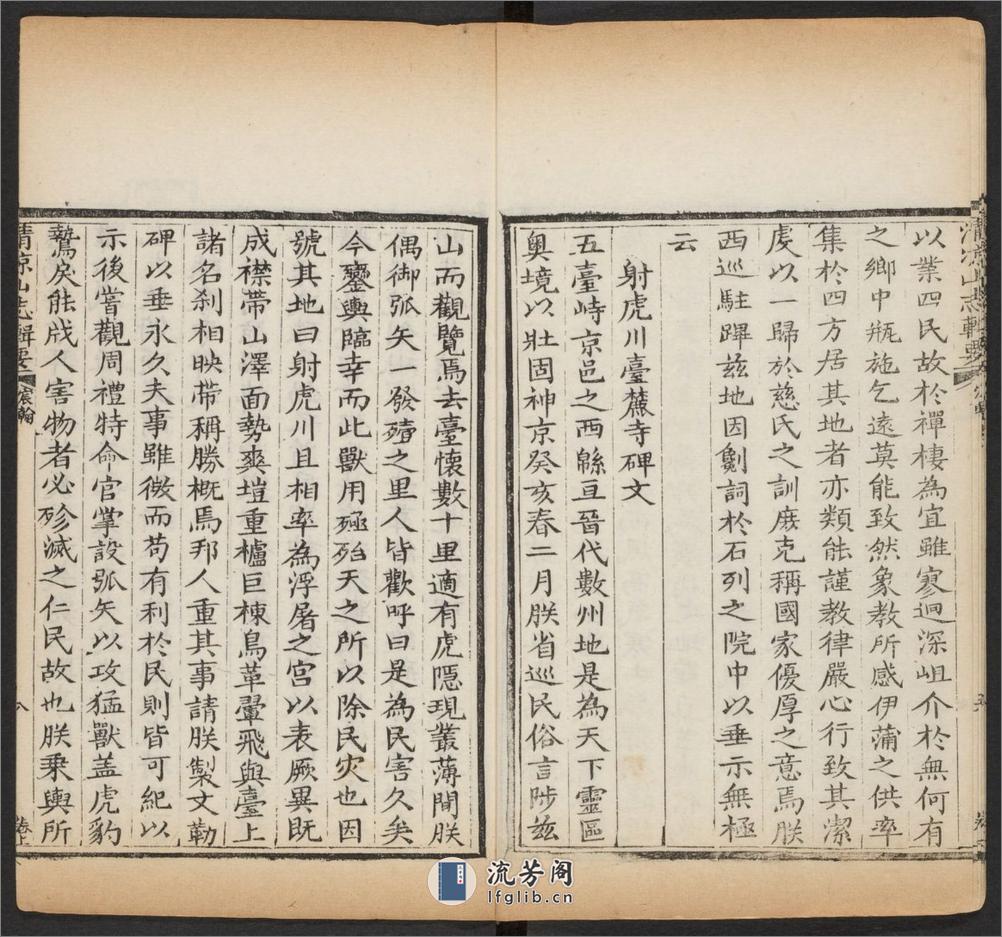 以業四民故於禪棲為宜雖寥迥深岨介於無何有
之鄉中瓶施乞遠莫能致然象教所感伊蒲之供率
集於四方居其地者亦類能謹教律嚴心行致其潔
虔以一歸於慈氏之訓庶克稱國家優厚之意焉朕
西巡駐蹕茲地因劖詞於石列之院中以垂示無極
云
射虎川臺麓寺碑文
五臺峙京邑之西緜亘晉代數州地是為天下靈區
奧境以壯固神京癸亥春二月朕省巡民俗言陟茲
山而觀覽焉去臺懷數十里適有虎隱現叢薄間朕
偶御弧矢一發殪之里人皆歡呼曰是為民害久矣
今鑾輿臨幸而此獸用殛殆天之所以除民灾也因
號其地曰射虎川且相率為浮屠之宮以表厥異既
成襟帶山澤面勢爽塏重櫨巨棟鳥革翬飛與臺上
諸名刹相映帶稱勝概焉邦人重其事請朕製文勒
碑以垂永久夫事雖微而苟有利於民則皆可紀以
示後嘗觀周禮特命官掌設弧矢以攻猛獸盖虎豹
鷙戾能戕人害物者必殄滅之仁民故也朕乗輿所
清涼山志輯要
宸翰
八
流芳阁
lfglib.cn